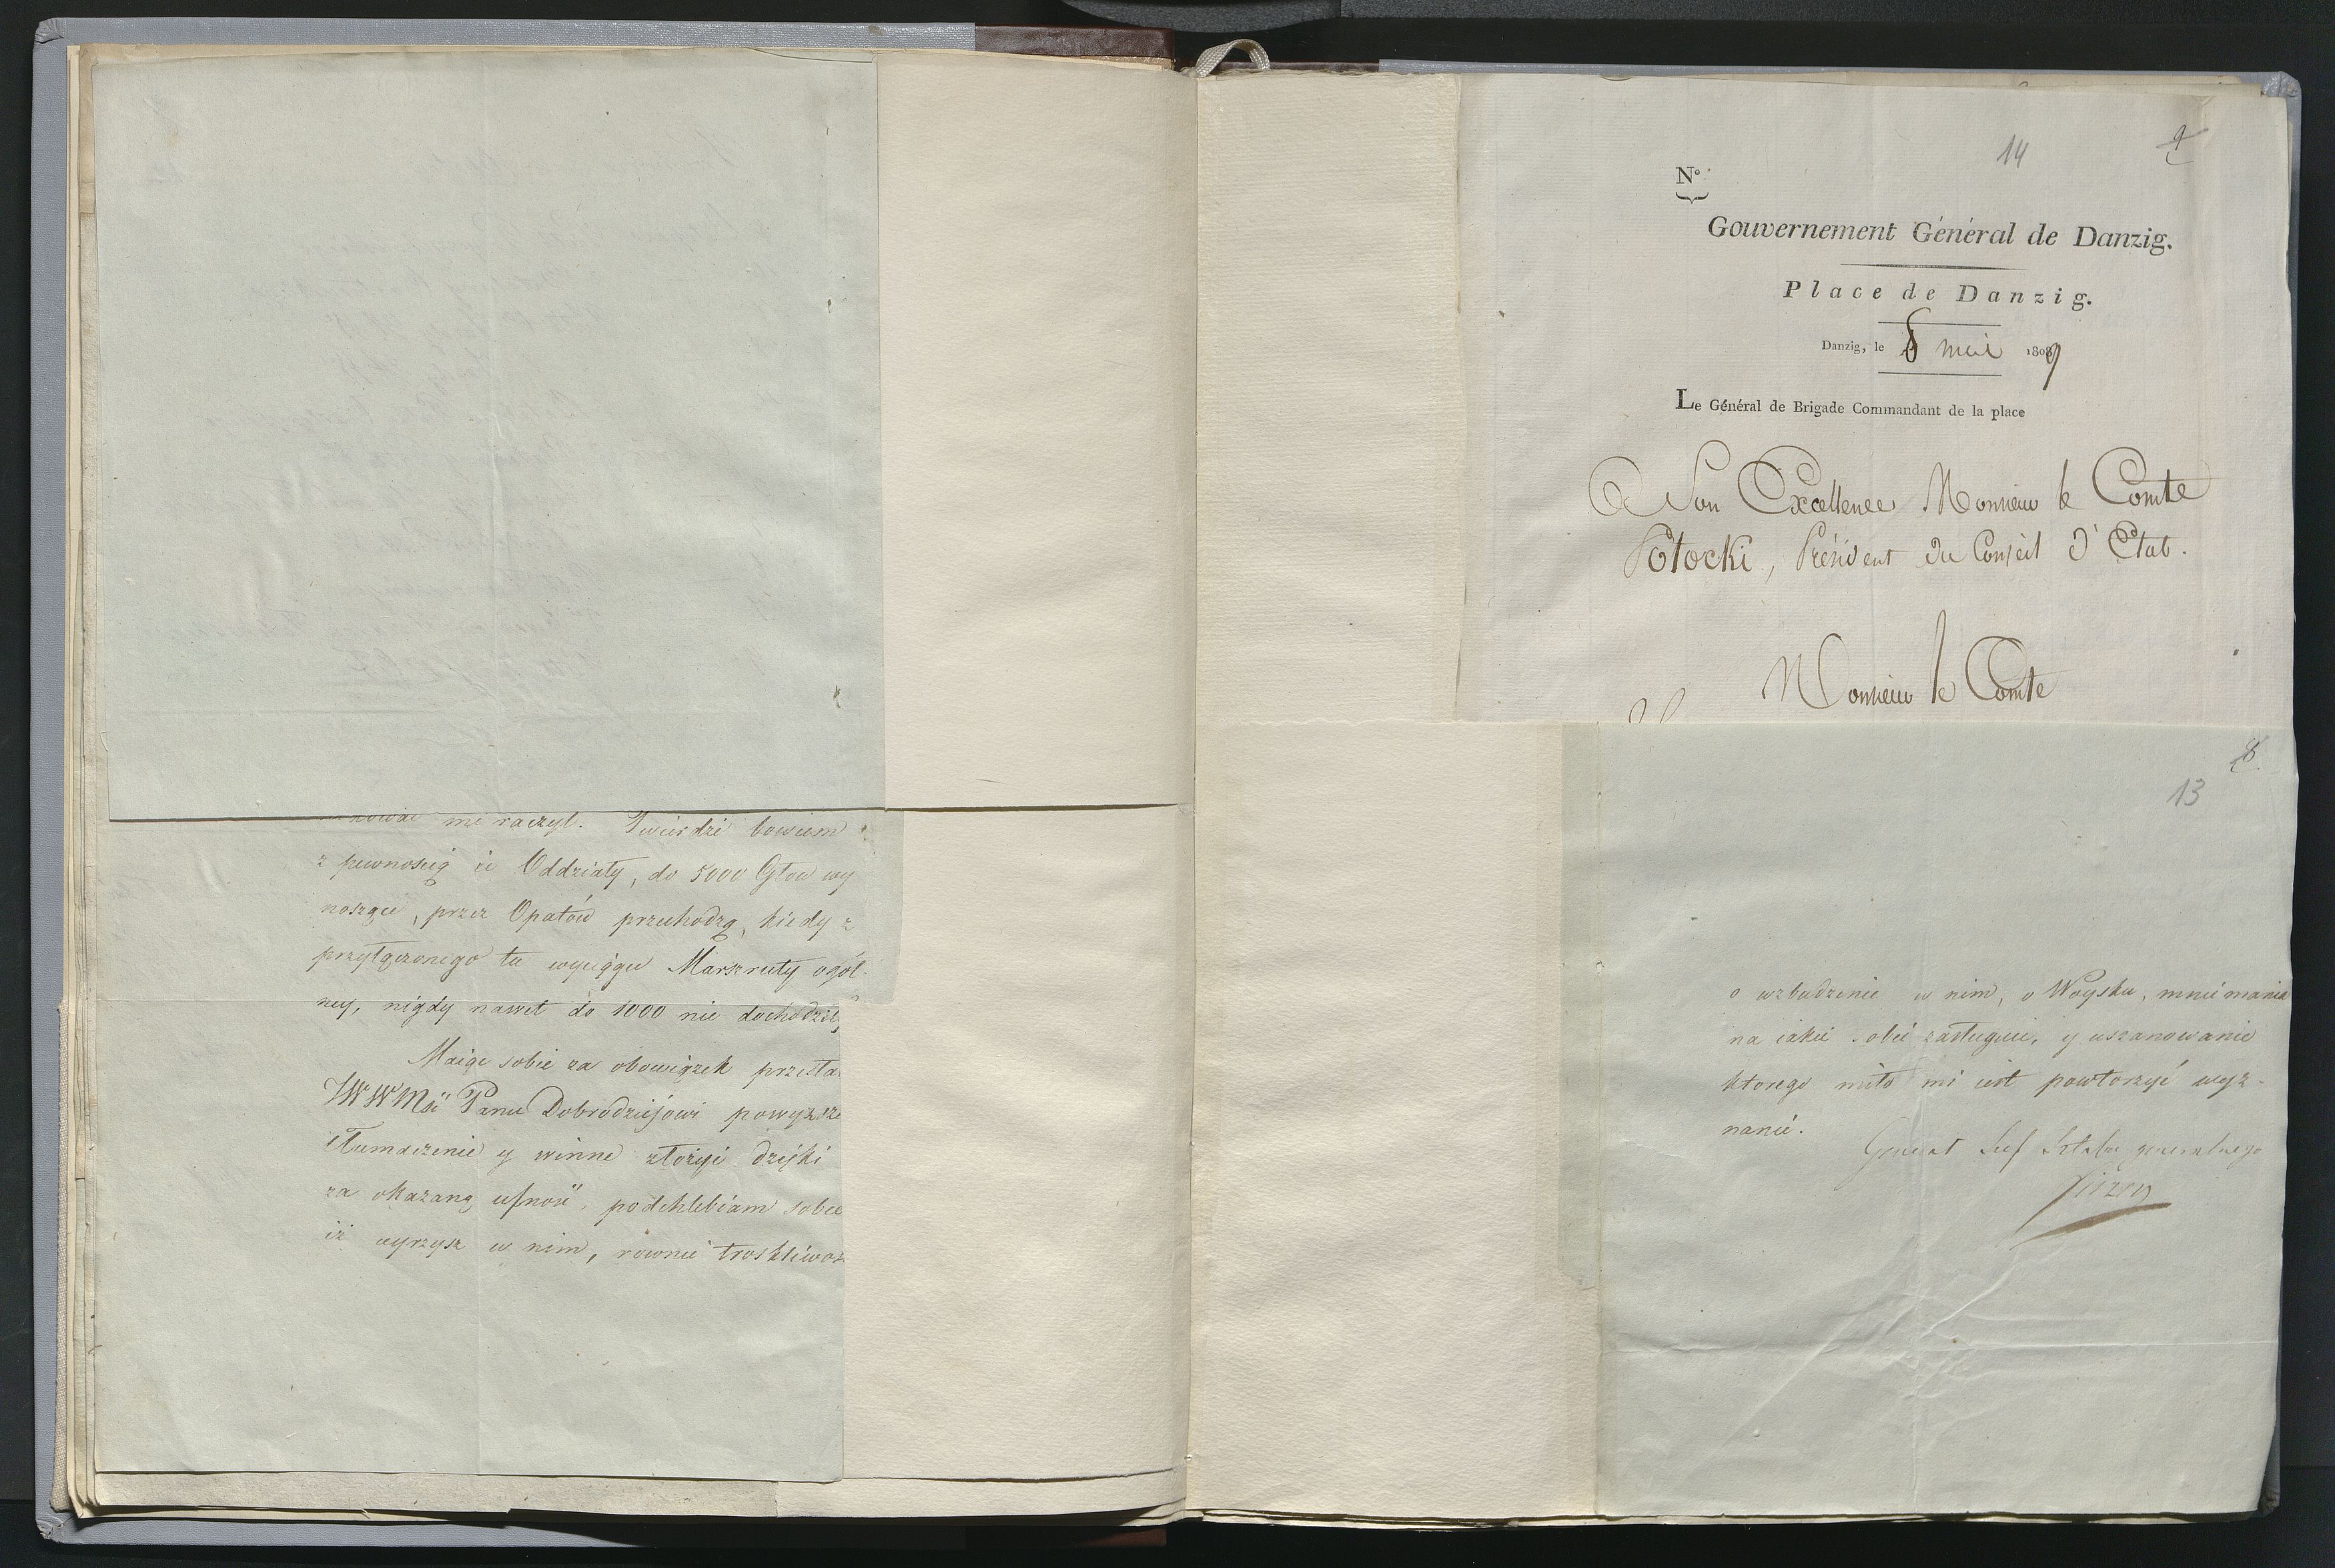 raczył. Twierdzi bowiem
z pewnością iż Oddziały, do 5000 Głow wy
noszące, przez Opatów przechodzą, kiedy z
przyłączonego tu wyciągu Marszruty ogól-
ney, nigdy nawet do 1000 nie dochodziły
Maiąc sobie za obowiązek przesła
JWWMść Panu Dobrodziejowi powyższe
tłumaczenie y winne złożyć dzięki
za okazaną ufność, podchlebiam sobie
iż uyrzysz w nim, równie troskliwoś
14
9
N.º
Gouvernement Général de Danzig.
Place de Danzig.
Danzig, le 8 mai 1809
Le Général de Brigade Commandant de la place
A Son Excellence Monsieur le Comte
Potocki, Président du Conseil d'Etat.
Monsieur le Comte
8.
13
o wzbudzenie w nim, o Woysku, mniemania
na iakie sobie zasługuie, y uszanowanie
ktorego miło mi iest powtorzyć wyz-
nanie.
Generał Szef Sztabu generalnego
Fiszer